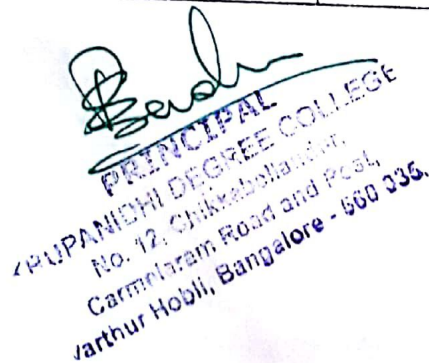 PRINCIPAL
KRUPANIDHI DEGREE COLLEGE
No. 12, Chikkabellandur,
Carmelaram Road and Post,
Varthur Hobli, Bangalore - 560 035.